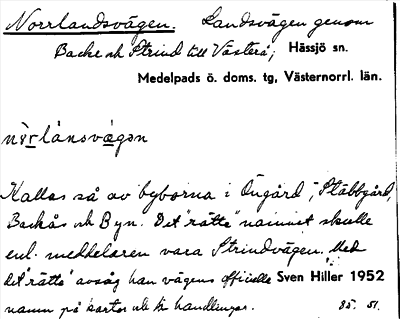 Norrlandsvägen. Landsvägen genom
Backe och Strind till Västerå; Hässjö sn.
Medelpads ö. doms. tg, Västernorrl. län.
Kallas så av byborna i Öngård, Stäbbgård,
Backås och Byn. Det "rätta" namnet skulle
enl. meddelaren vara Strindvägen. Med
det "rätta" avsåg han vägens officielle Sven Hiller 1952
namn på kartor och i handlingar. 85. 51.